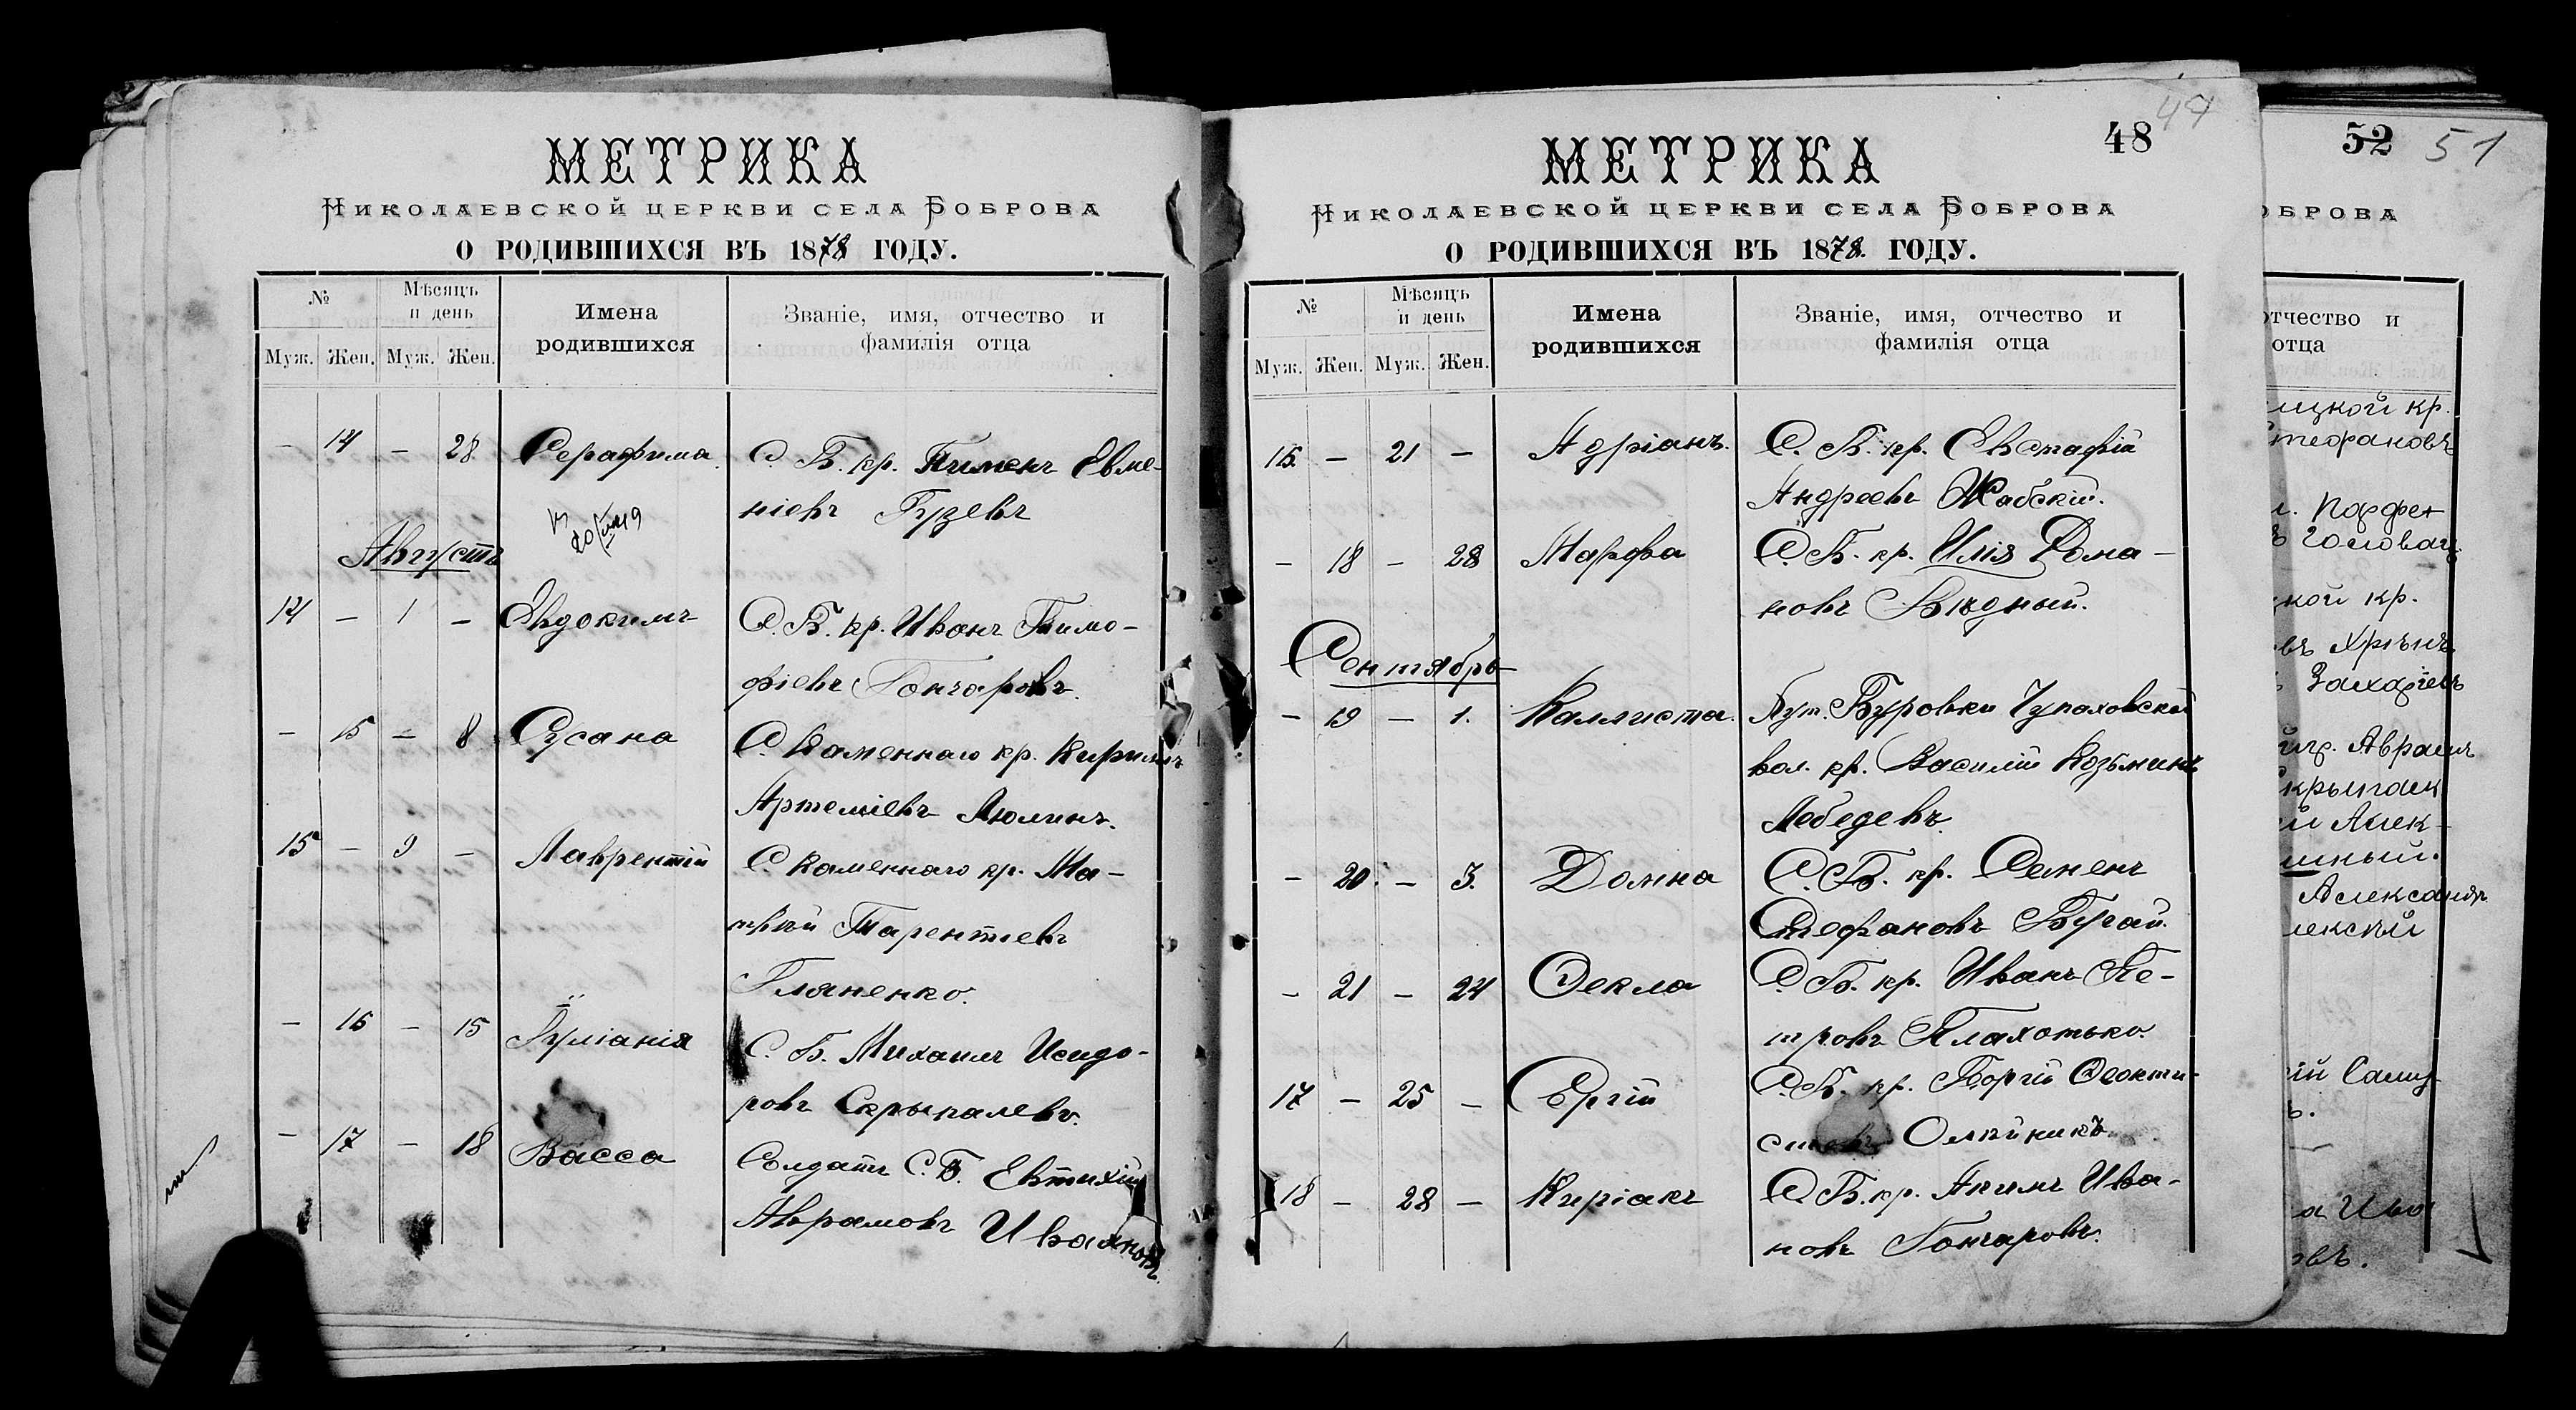 МЕТРИКА
НИКОЛАЕВСКОЙ ЦЕРКВИ СЕЛА БОБРОВА
О РОДИВШИХСЯ ВЪ 1878 ГОДУ.
№ Мѣсяцъ и день Имена родившихся Званіе, имя, отчество и фамилія отца
Муж. Жен. Муж. Жен.
— 14 — 28 Серафима С. Б. кр. Пименъ Евме-
ніевъ Гузевъ
Августъ
14 — 1 — Евдокимъ С. Б. кр. Иванъ Тимо-
фіевъ Гончаровъ.
— 15 — 8 Сусана С. Каменнаго кр. Кириллъ
Артеміевъ Люлинъ.
15 — 9 — Лаврентій С. Каменнаго кр. Ма-
твѣй Тарентіевъ
Гляненко.
— 16 — 15 Іуліанія С. Б. Михаилъ Исидо-
ровъ Скрыпалевъ.
— 17 — 18 Васса Солдатъ С. Б. Евтихій
Аврамовъ Ивановъ.
48
МЕТРИКА
НИКОЛАЕВСКОЙ ЦЕРКВИ СЕЛА БОБРОВА
О РОДИВШИХСЯ ВЪ 1878. ГОДУ.
№ Мѣсяцъ и день Имена родившихся Званіе, имя, отчество и фамилія отца
Муж. Жен. Муж. Жен.
16. — 21 — Адріанъ. С. Б. кр. Евстафій
Андреевъ Жабскій.
— 18 — 28 Марфа С. Б. кр. Илія Рома-
новъ Бѣдный.
Сентябрь
— 19 — 1. Каллиста. Хут. Буровки Чупаховской
вол. кр. Василій Козьминъ
Лебедевъ.
— 20. — 3. Домна С. Б. кр. Семенъ
Стефановъ Бугай.
— 21 — 24 Ѳекла С. Б. кр. Иванъ Пе-
тровъ Плахотько.
17 — 25 — Сергій С. Б. кр. Георгій Ѳеокти-
стовъ Олѣйникъ
18 — 28 — Киріакъ С. Б. кр. Акимъ Ива-
новъ Гончаровъ.
52 51
ОБРОВА
отчество и
отца
ицкой кр.
Стефановъ
Парфен
Головачъ
кой кр.
въ Хрѣнъ
Захаріевъ
Авраамъ
Алек-
Александръ
Самуй-
а Ива
овъ.